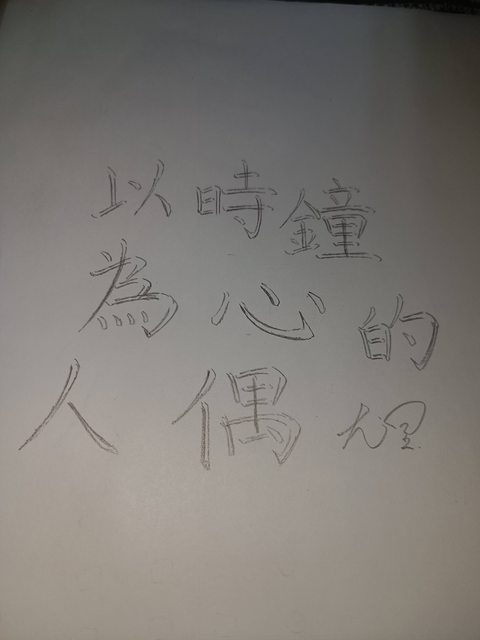 以時鐘
為心的
人偶